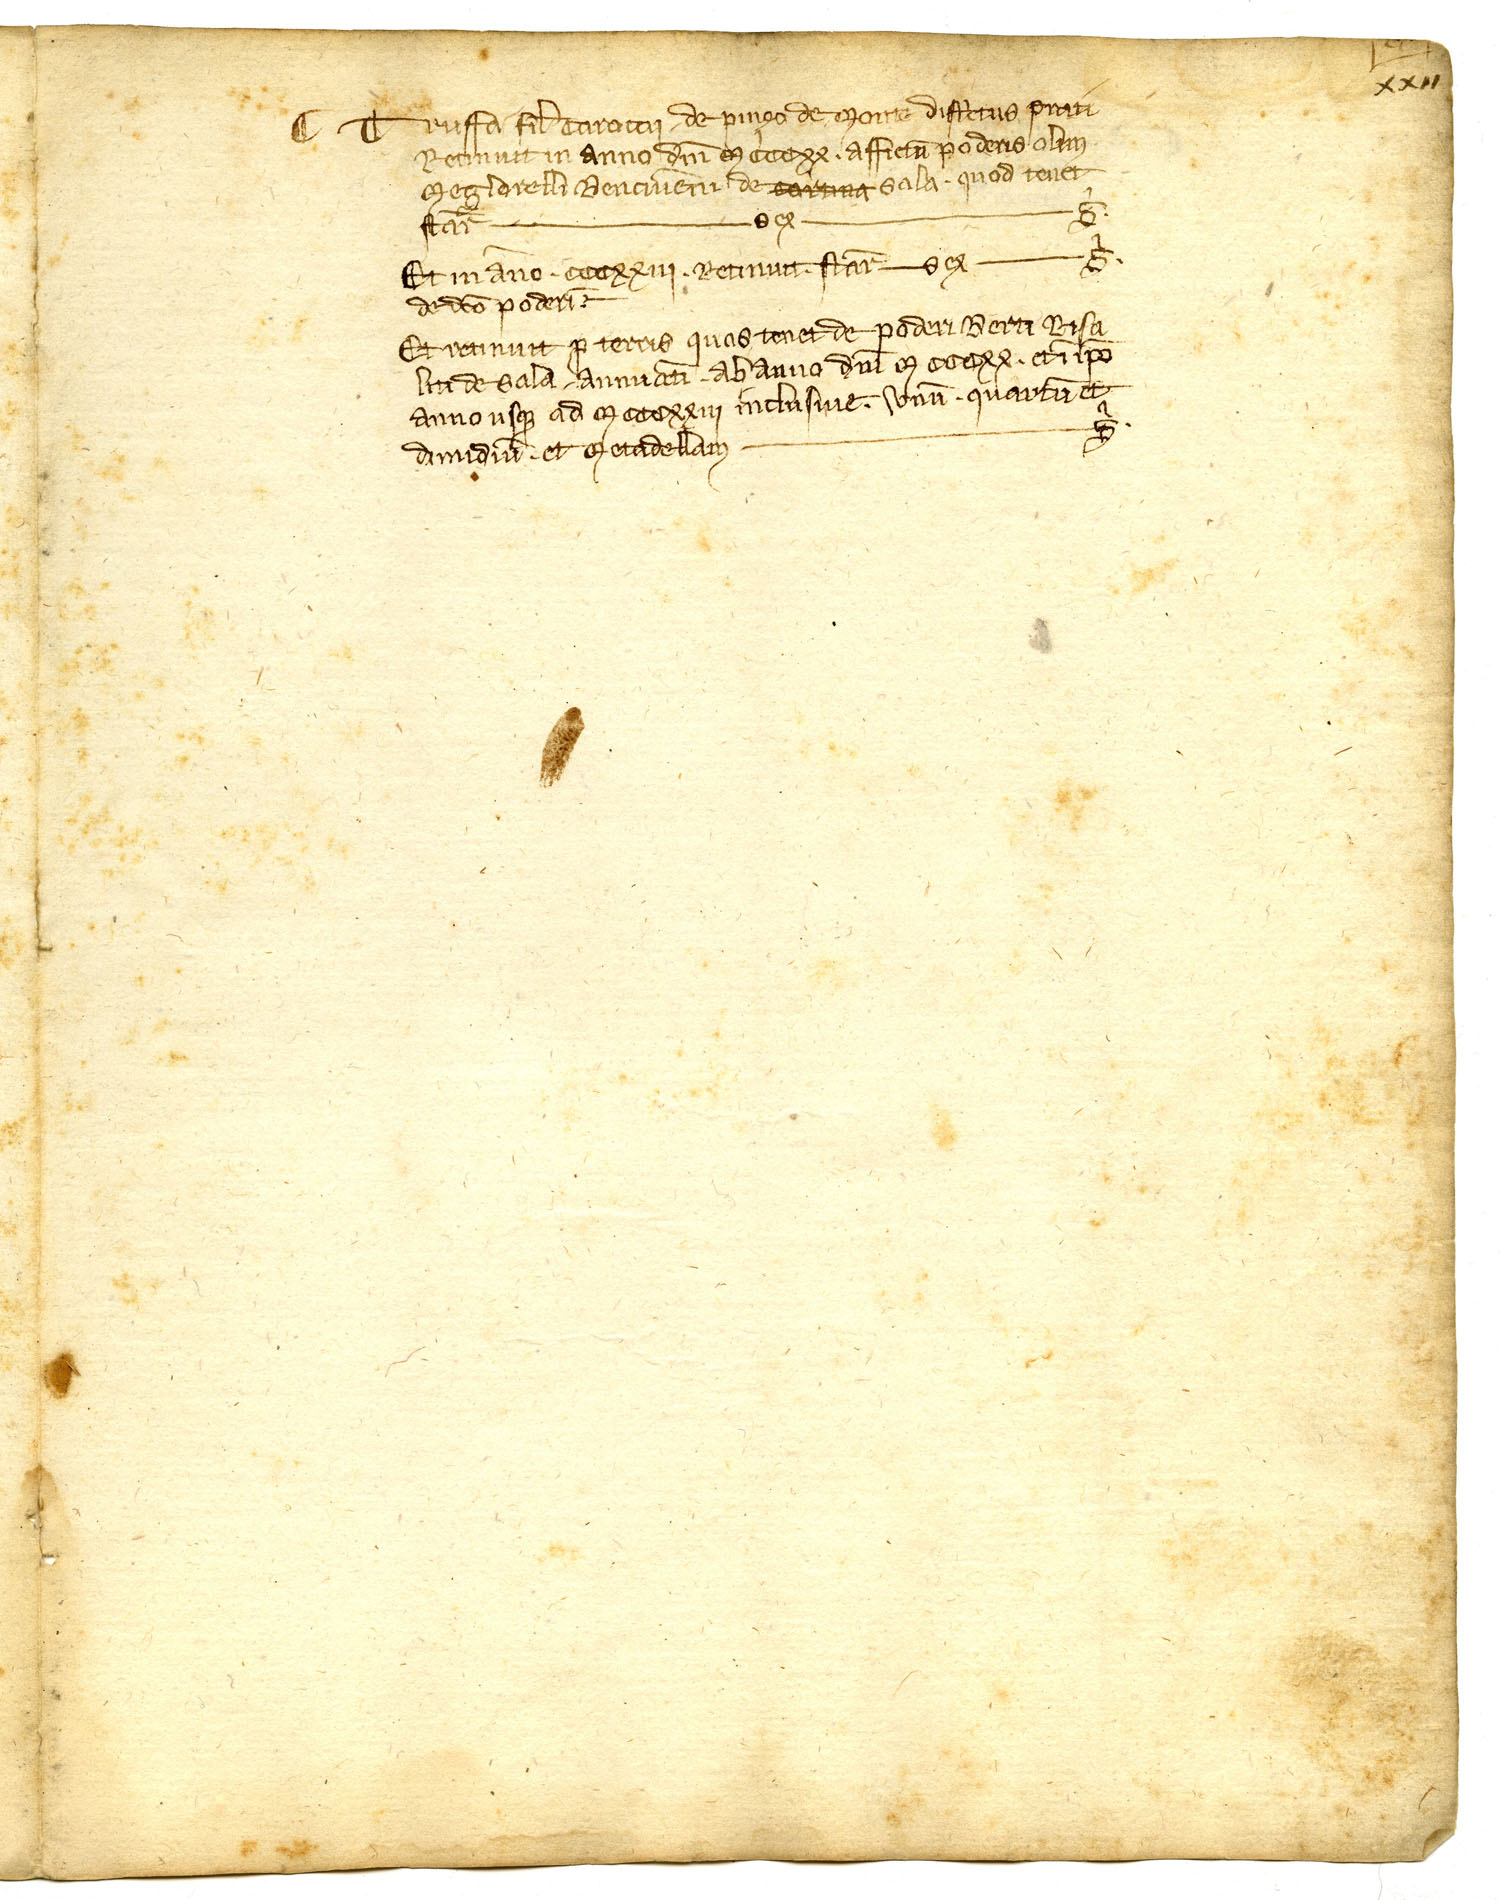 XXII
¶ Truffa fil' Caroccii de pingo de Monte districtus prati
Retinuit in anno dn̄i MCCCXX. affictū poderis olim
Megliorelli Benciuēni de cartina Sala. quod tenet
star̄ sex G̃.
Et in año. CCCXXIII. Retinuit. star̄ sex G̃.
de dc̄o poderi
Et retinuit p̱ terris quas tenet de poderi Berti Risa
liti de Sala. annuatī. ab anno dn̄i MCCCXX. et ī ip̄o
anno usqꝫ ad MCCCXXIII inclusiue. Vnū. quartū et
dimidiū. et Metadellam G̃.